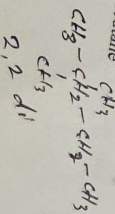 CH3
CH3 - CH2 - CH2 - CH3
CH3
2,2 di